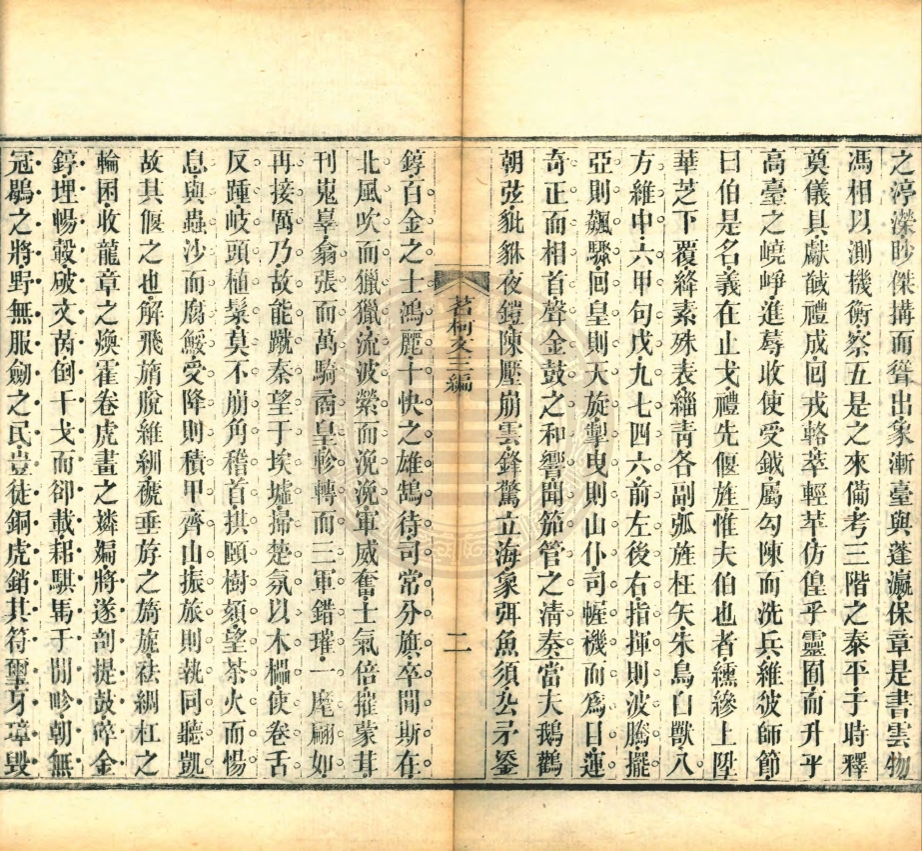 之渟濚眇傑搆而聳出象漸臺與蓬瀛保章是書雲物
馮相以測機衡察五是之來備考三階之泰平于時釋
奠儀具獻馘禮成回戎輅萃輕苹仿偟乎靈囿而升乎
高臺之嶢崢進蓐收使受鉞屬勾陳而洗兵維彼師節
曰伯是名義在止戈禮先偃旌惟夫伯也者纁縿上陞
華芝下覆絳素殊表緇靑各副弧旌枉矢朱鳥白獸八
方維申六甲句戊九七四六前左後右指揮則波騰擺
亞則飆驟回皇則天旋掣曳則山仆司幄機而爲日運
奇正而相首聲金鼓之和響聞笳管之清奏當夫鵝鸛
朝弦豼貅夜鎧陳壓崩雲鋒驚立海象弭魚須厹矛鋈
茗柯文三編
二
錞百金之士鴻麗十快之雄鵠待司常分旗卒閒斯在
北風吹而獵獵流波縈而浼浼軍威奮士氣倍摧蒙茸
刊嵬辠翕張而萬騎矞皇軫轉而三軍錯璀一麾翩如
再接厲乃故能蹴秦望于埃墟掃楚氛以木欃使卷舌
反踵岐頭植髮莫不崩角稽首拱頤樹頦望荼火而惕
息與蟲沙而腐鯘受降則積甲齊山振旅則執同聽凱
故其偃之也解飛旓脫維綢褫垂斿之旖旎祛綢杠之
輪囷收龍章之煥霍卷虎畫之㷠斒將遂剖提鼓碎金
錞埋暢轂破文茵倒干戈而卻載耜騏馬于閒畛朝無
冠鶡之將野無服劒之民豈徒銅虎銷其符璽牙璋毀